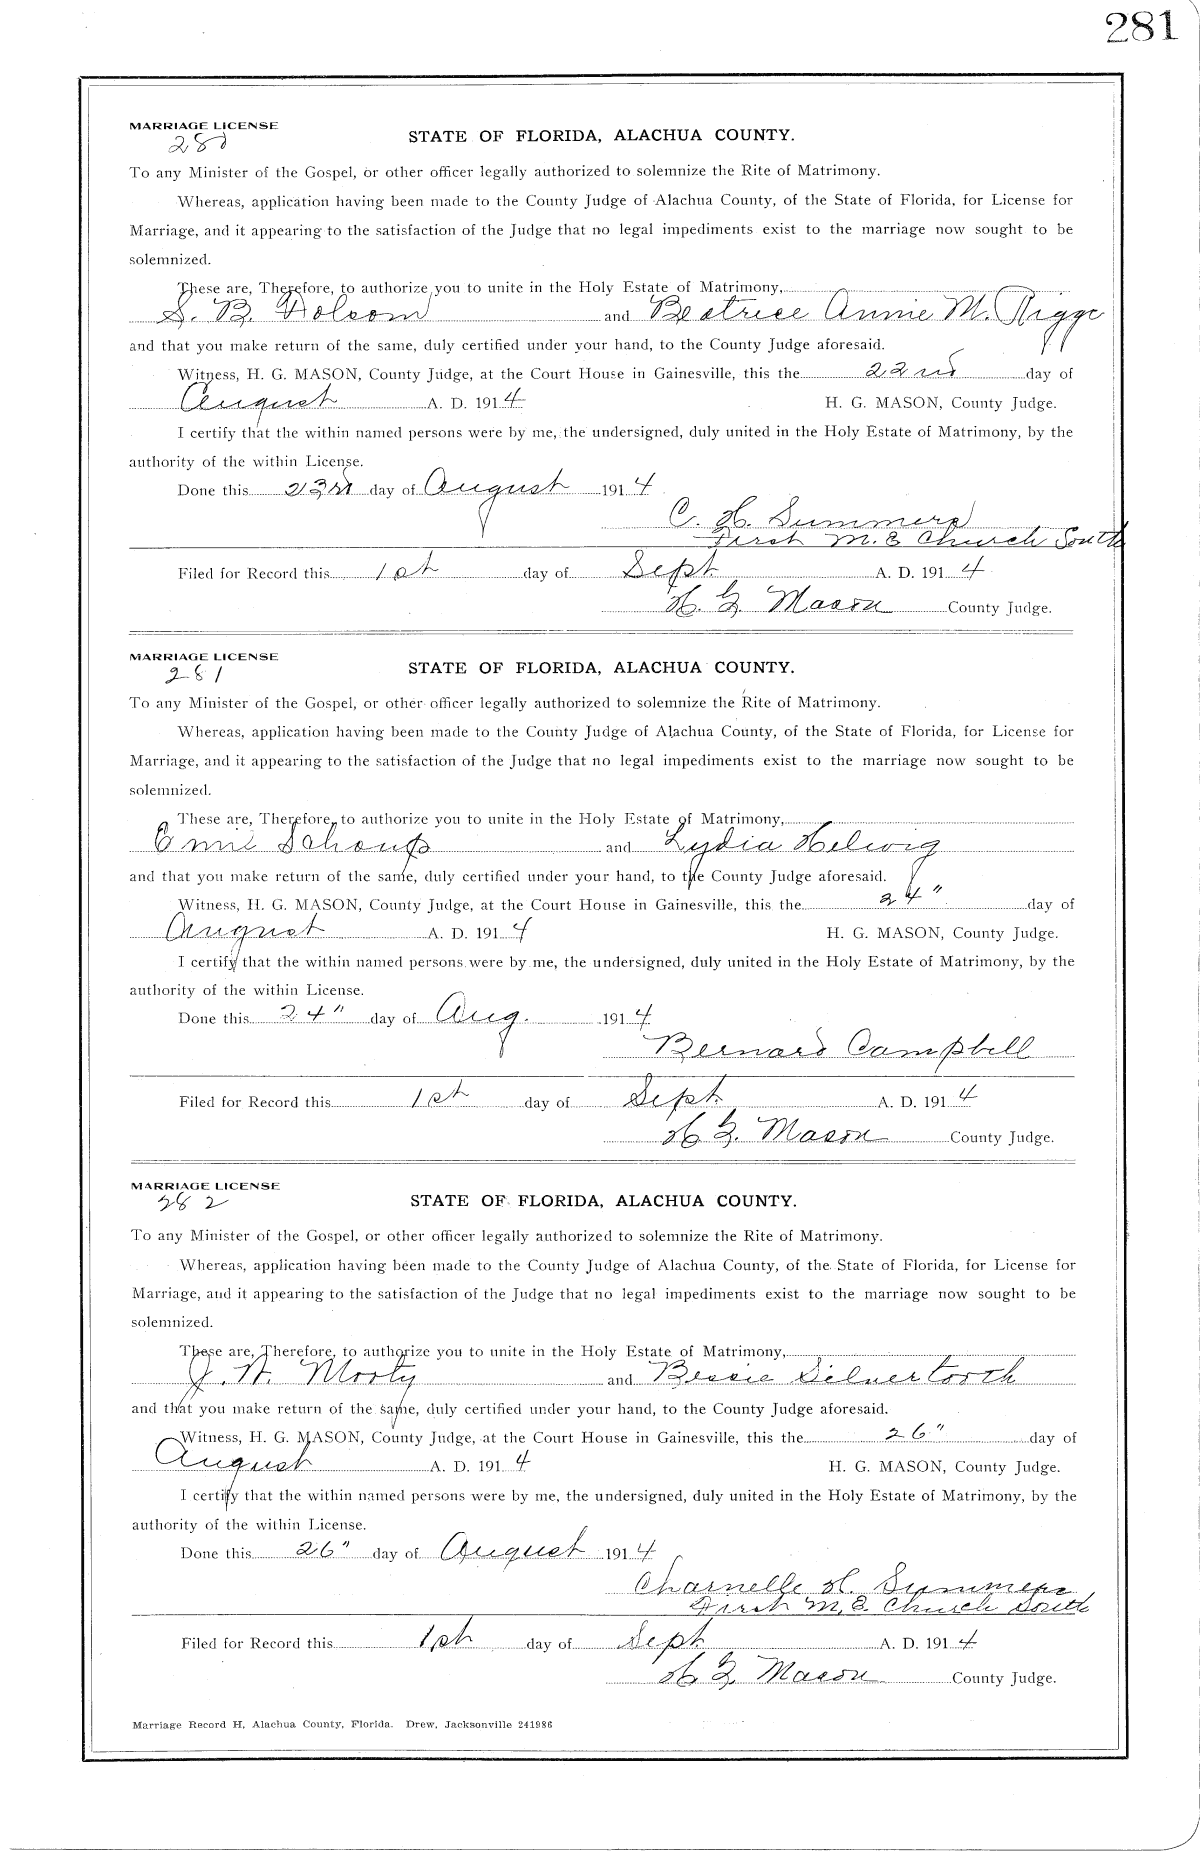 281
MARRIAGE LICENSE
280
STATE OF FLORIDA, ALACHUA COUNTY.
To any Minister of the Gospel, or other officer legally authorized to solemnize the Rite of Matrimony.
Whereas, application having been made to the County Judge of Alachua County, of the State of Florida, for License for
Marriage, and it appearing to the satisfaction of the Judge that no legal impediments exist to the marriage now sought to be
solemnized.
These are, Therefore, to authorize you to unite in the Holy Estate of Matrimony,
S. B. Folsom and Beatrice Annie M. Riggs
and that you make return of the same, duly certified under your hand, to the County Judge aforesaid.
Witness, H. G. MASON, County Judge, at the Court House in Gainesville, this the 22nd day of
August A. D. 1914 H. G. MASON, County Judge.
I certify that the within named persons were by me, the undersigned, duly united in the Holy Estate of Matrimony, by the
authority of the within License.
Done this 23rd day of August 1914
C. H. Summers
First M. E Church South
Filed for Record this 1st day of Sept A. D. 1914
H. G. Mason County Judge.
MARRIAGE LICENSE
281
STATE OF FLORIDA, ALACHUA COUNTY.
To any Minister of the Gospel, or other officer legally authorized to solemnize the Rite of Matrimony.
Whereas, application having been made to the County Judge of Alachua County, of the State of Florida, for License for
Marriage, and it appearing to the satisfaction of the Judge that no legal impediments exist to the marriage now sought to be
solemnized.
These are, Therefore, to authorize you to unite in the Holy Estate of Matrimony,
Emil Schoup and Lydia Helwig
and that you make return of the same, duly certified under your hand, to the County Judge aforesaid.
Witness, H. G. MASON, County Judge, at the Court House in Gainesville, this the 24" day of
August A. D. 1914 H. G. MASON, County Judge.
I certify that the within named persons were by me, the undersigned, duly united in the Holy Estate of Matrimony, by the
authority of the within License.
Done this 24" day of Aug. 1914
Bernard Campbell
Filed for Record this 1st day of Sept. A. D. 1914
H. G. Mason County Judge.
MARRIAGE LICENSE
282
STATE OF FLORIDA, ALACHUA COUNTY.
To any Minister of the Gospel, or other officer legally authorized to solemnize the Rite of Matrimony.
Whereas, application having been made to the County Judge of Alachua County, of the State of Florida, for License for
Marriage, and it appearing to the satisfaction of the Judge that no legal impediments exist to the marriage now sought to be
solemnized.
These are, Therefore, to authorize you to unite in the Holy Estate of Matrimony,
Morty and Bessie Silvertooth
and that you make return of the same, duly certified under your hand, to the County Judge aforesaid.
Witness, H. G. MASON, County Judge, at the Court House in Gainesville, this the 26" day of
August A. D. 1914 H. G. MASON, County Judge.
I certify that the within named persons were by me, the undersigned, duly united in the Holy Estate of Matrimony, by the
authority of the within License.
Done this 26" day of August 1914
Charnelle H. Summers
First M. E. Church South
Filed for Record this 1st day of Sept A. D. 1914
H. G. Mason County Judge.
Marriage Record H, Alachua County, Florida. Drew, Jacksonville 241986